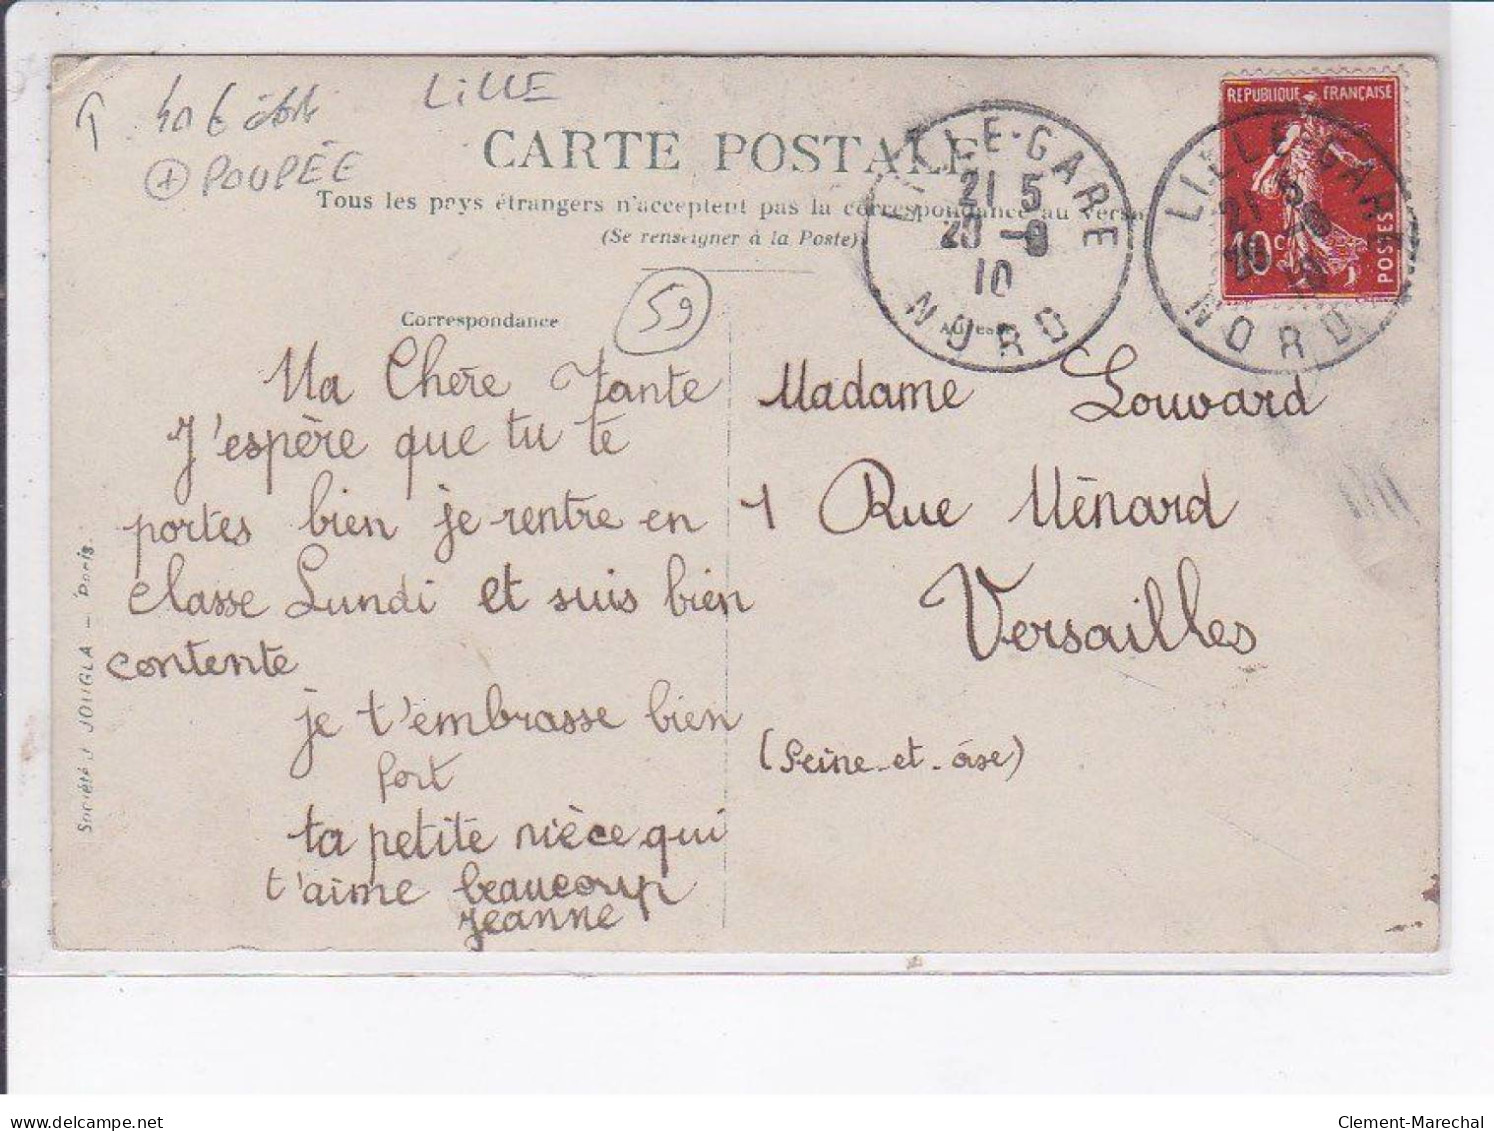 LILLE
+ POUPÉE
CARTE POSTALE
Tous les pays étrangers n'acceptent pas la correspondance au verso
(Se renseigner à la Poste)
REPUBLIQUE FRANÇAISE
10 c.
POSTES
LILLE-GARE
21 5
20 - 9
10
NORD
LILLE-GARE
21 5
20 - 9
10
NORD
59
Correspondance
Adresse
Ma Chère Tante
J'espère que tu te
portes bien je rentre en
classe Lundi et suis bien
contente
je t'embrasse bien
fort
ta petite nièce qui
t'aime beaucoup
Jeanne
Madame Louvard
1 Rue Ménard
Versailles
(Seine-et-oise)
Société J JOUGLA — Paris.
delcampe.net
Clement-Marechal